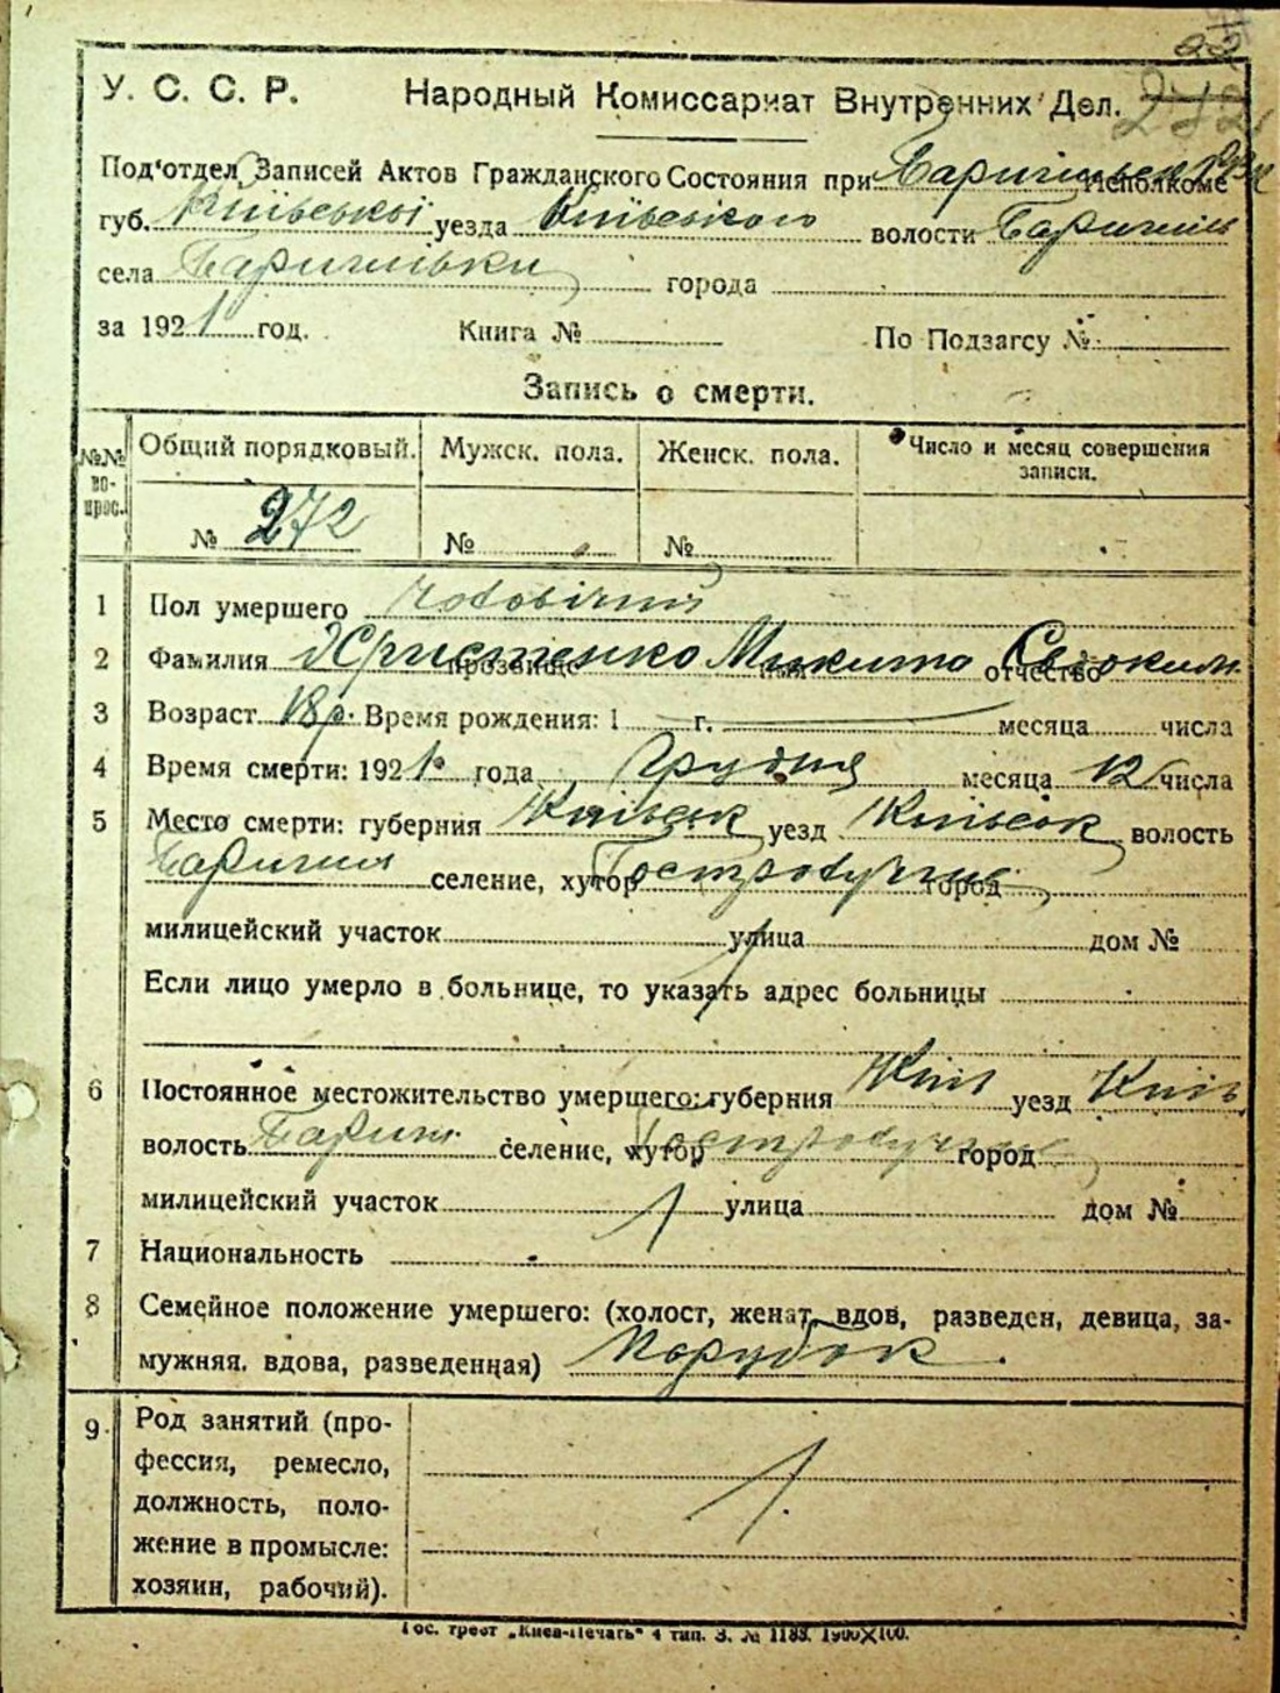 22
272
У. С. С. Р. Народный Комиссариат Внутренних Дел.
Под'отдел Записей Актов Гражданского Состояния при Исполкоме
губ. Київської уезда Київського волости
села за 1921 год. города
Книга № По Подзагсу №
Запись о смерти.
№№ вопрос. Общий порядковый. Мужск. пола. Женск. пола. Число и месяц совершения записи.
№ 272 № №
1 Пол умершего чоловічий
2 Фамилия прозвище Христенко имя Микита отчество
3 Возраст 18 р. Время рождения: 1 г. месяца числа
4 Время смерти: 1921 года Грудня месяца 12 числа
5 Место смерти: губерния Київськ уезд Київськ волость
селение, хутор город
милицейский участок улица дом №
Если лицо умерло в больнице, то указать адрес больницы
6 Постоянное местожительство умершего: губерния Київ уезд Київ
волость селение, хутор город
милицейский участок улица дом №
7 Национальность
8 Семейное положение умершего: (холост, женат, вдов, разведен, девица, за-
мужняя, вдова, разведенная) Парубок.
9. Род занятий (про-
фессия, ремесло,
должность, поло-
жение в промысле:
хозяин, рабочий).
Гос. трест „Киев-Печать“ 4 тип. З. № 1188. 1900X100.